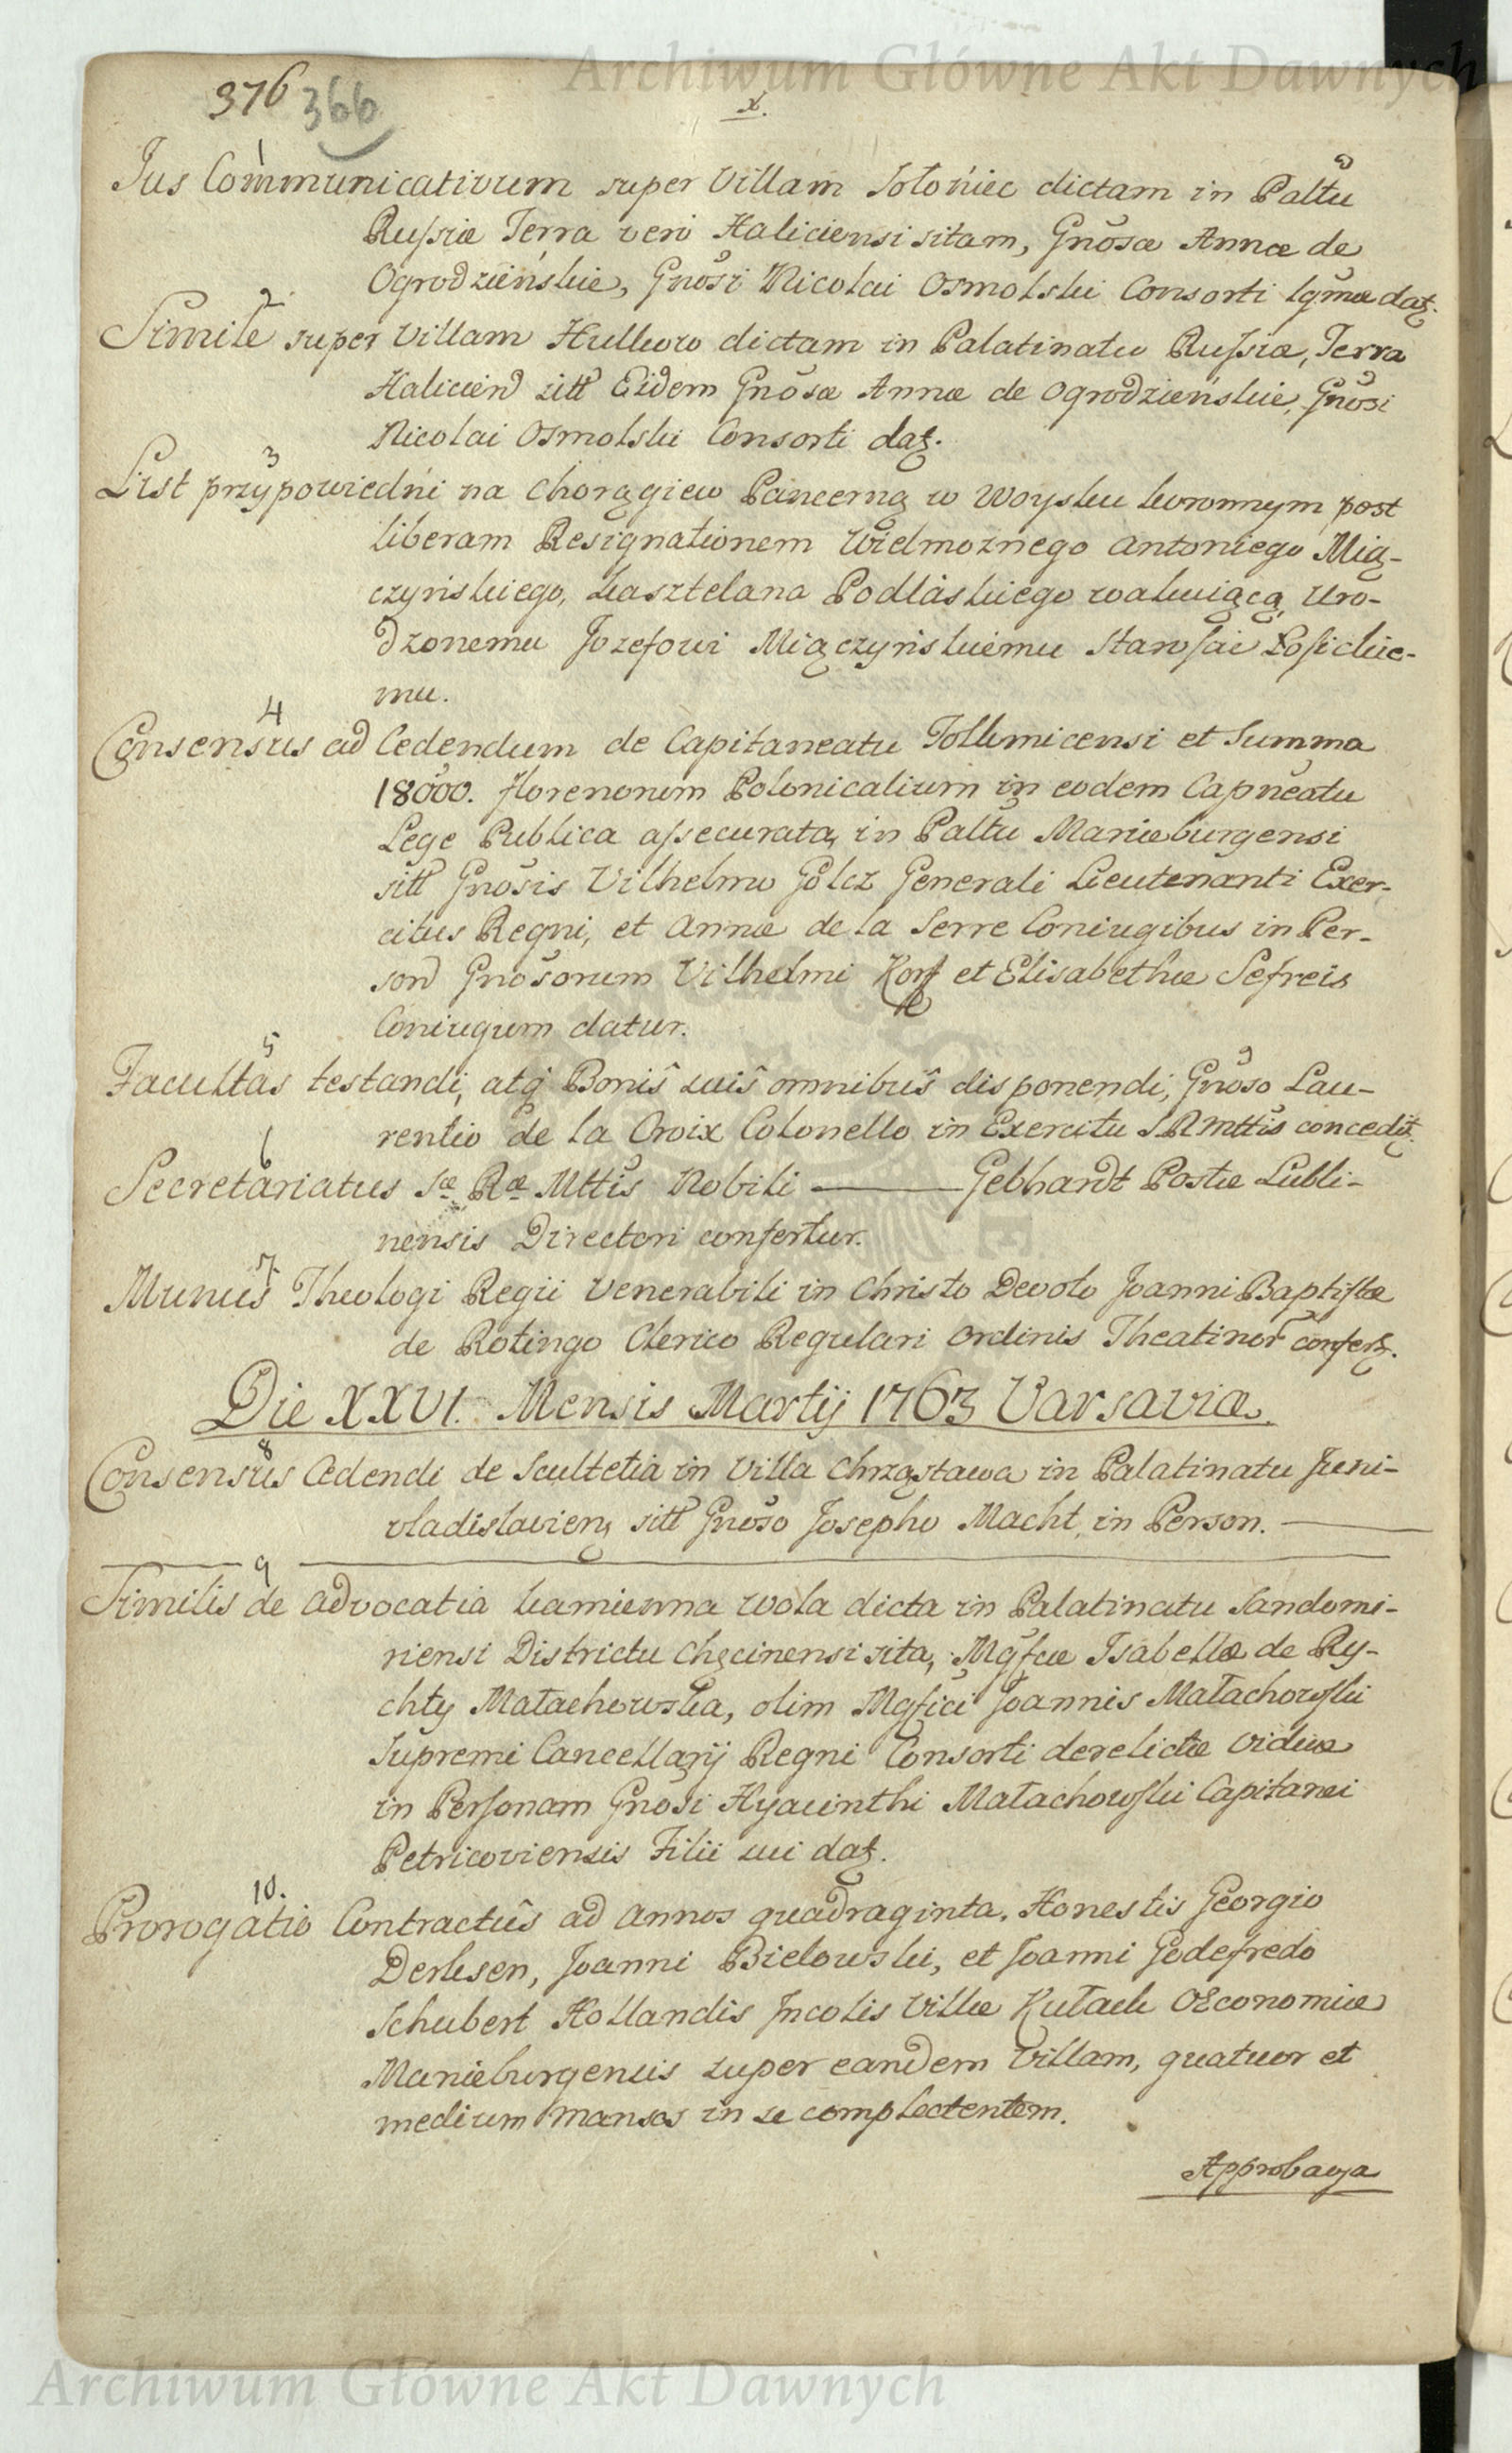 Archiwum Główne Akt Dawnych
376 366
x.
1
Jus Communicativum super Villam Sołoniec dictam in Paltu
Russiæ Terra vero Haliciensi sitam, Gnosæ Annæ de
Ogrodzieńskie, Gnosi Nicolai Osmolski Consorti lgmæ datʒ.
2.
Simile super Villam Hulkow dictam in Palatinatu Russiæ, Terra
Halicien sitt Eidem Gnosæ Annæ de Ogrodzieńskie, Gnosi
Nicolai Osmolski Consorti datʒ.
3
List przypowiedni na Chorągiew Pancerną w Woysku koronnym post
liberam Resignationem Wielmożnego Antoniego Mią-
czyńskiego, kasztelana Podlaskiego wakuiącą, Uro-
dzonemu Jozefowi Miączyńskiemu Starosci Łosickie-
mu.
4
Consensus ad Cedendum de Capitaneatu Tolkmicensi et Summa
18000. florenorum Polonicalium in eodem Capneatu
Lege Publica assecurata, in Paltu Mariæburgensi
sitt Gnosis Vilhelmo Golcz Generali Lieutenanti Exer-
citus Regni, et Annæ de la Serre Coniugibus in Per-
son Gnosorum Vilhelmi Korf et Elisabethæ Sefreis
Coniugum datur.
5
Facultas testandi, atq Bonis suis omnibus disponendi, Gnoso Lau-
rentio de la Croix Colonello in Exercitu S R Mttis conceditʒ.
6
Secretariatus Sæ Ræ Mttis Nobili ——— Gebhardt Postæ Lubli-
nensis Directori confertur.
7.
Munus Theologi Regii Venerabili in Christo Devoto Joanni Baptistæ
de Rotingo Clerico Regulari Ordinis Theatinor conferʒ.
Die XXVI. Mensis Martij 1763 Varsaviæ.
8
Consensus Cedendi de Scultetia in Villa Chrząstawa in Palatinatu Juni-
vladislavienʒ sitt Gnoso Josepho Macht, in Person. ———
9
Similis de Advocatia kamienna wola dicta in Palatinatu Sandomi-
riensi Districtu Chęcinensi sita, Mgfcæ Isabellæ de Ry-
chty Małachowska, olim Mgfici Joannis Małachowski
Supremi Cancellarij Regni Consorti derelictæ viduæ
in Personam Gnosi Hyacinthi Małachowski Capitanei
Petricoviensis Filii sui datʒ.
10.
Prorogatio Contractus ad annos quadraginta, Honestis Georgio
Derksen, Joanni Bielowski, et Joanni Godefredo
Schubert Hollandis Incolis Villæ Kułack Oeconomiæ
Mariæburgensis super eandem Villam, quatuor et
medium Mansos in se complectentem.
Approbacya
Archiwum Główne Akt Dawnych